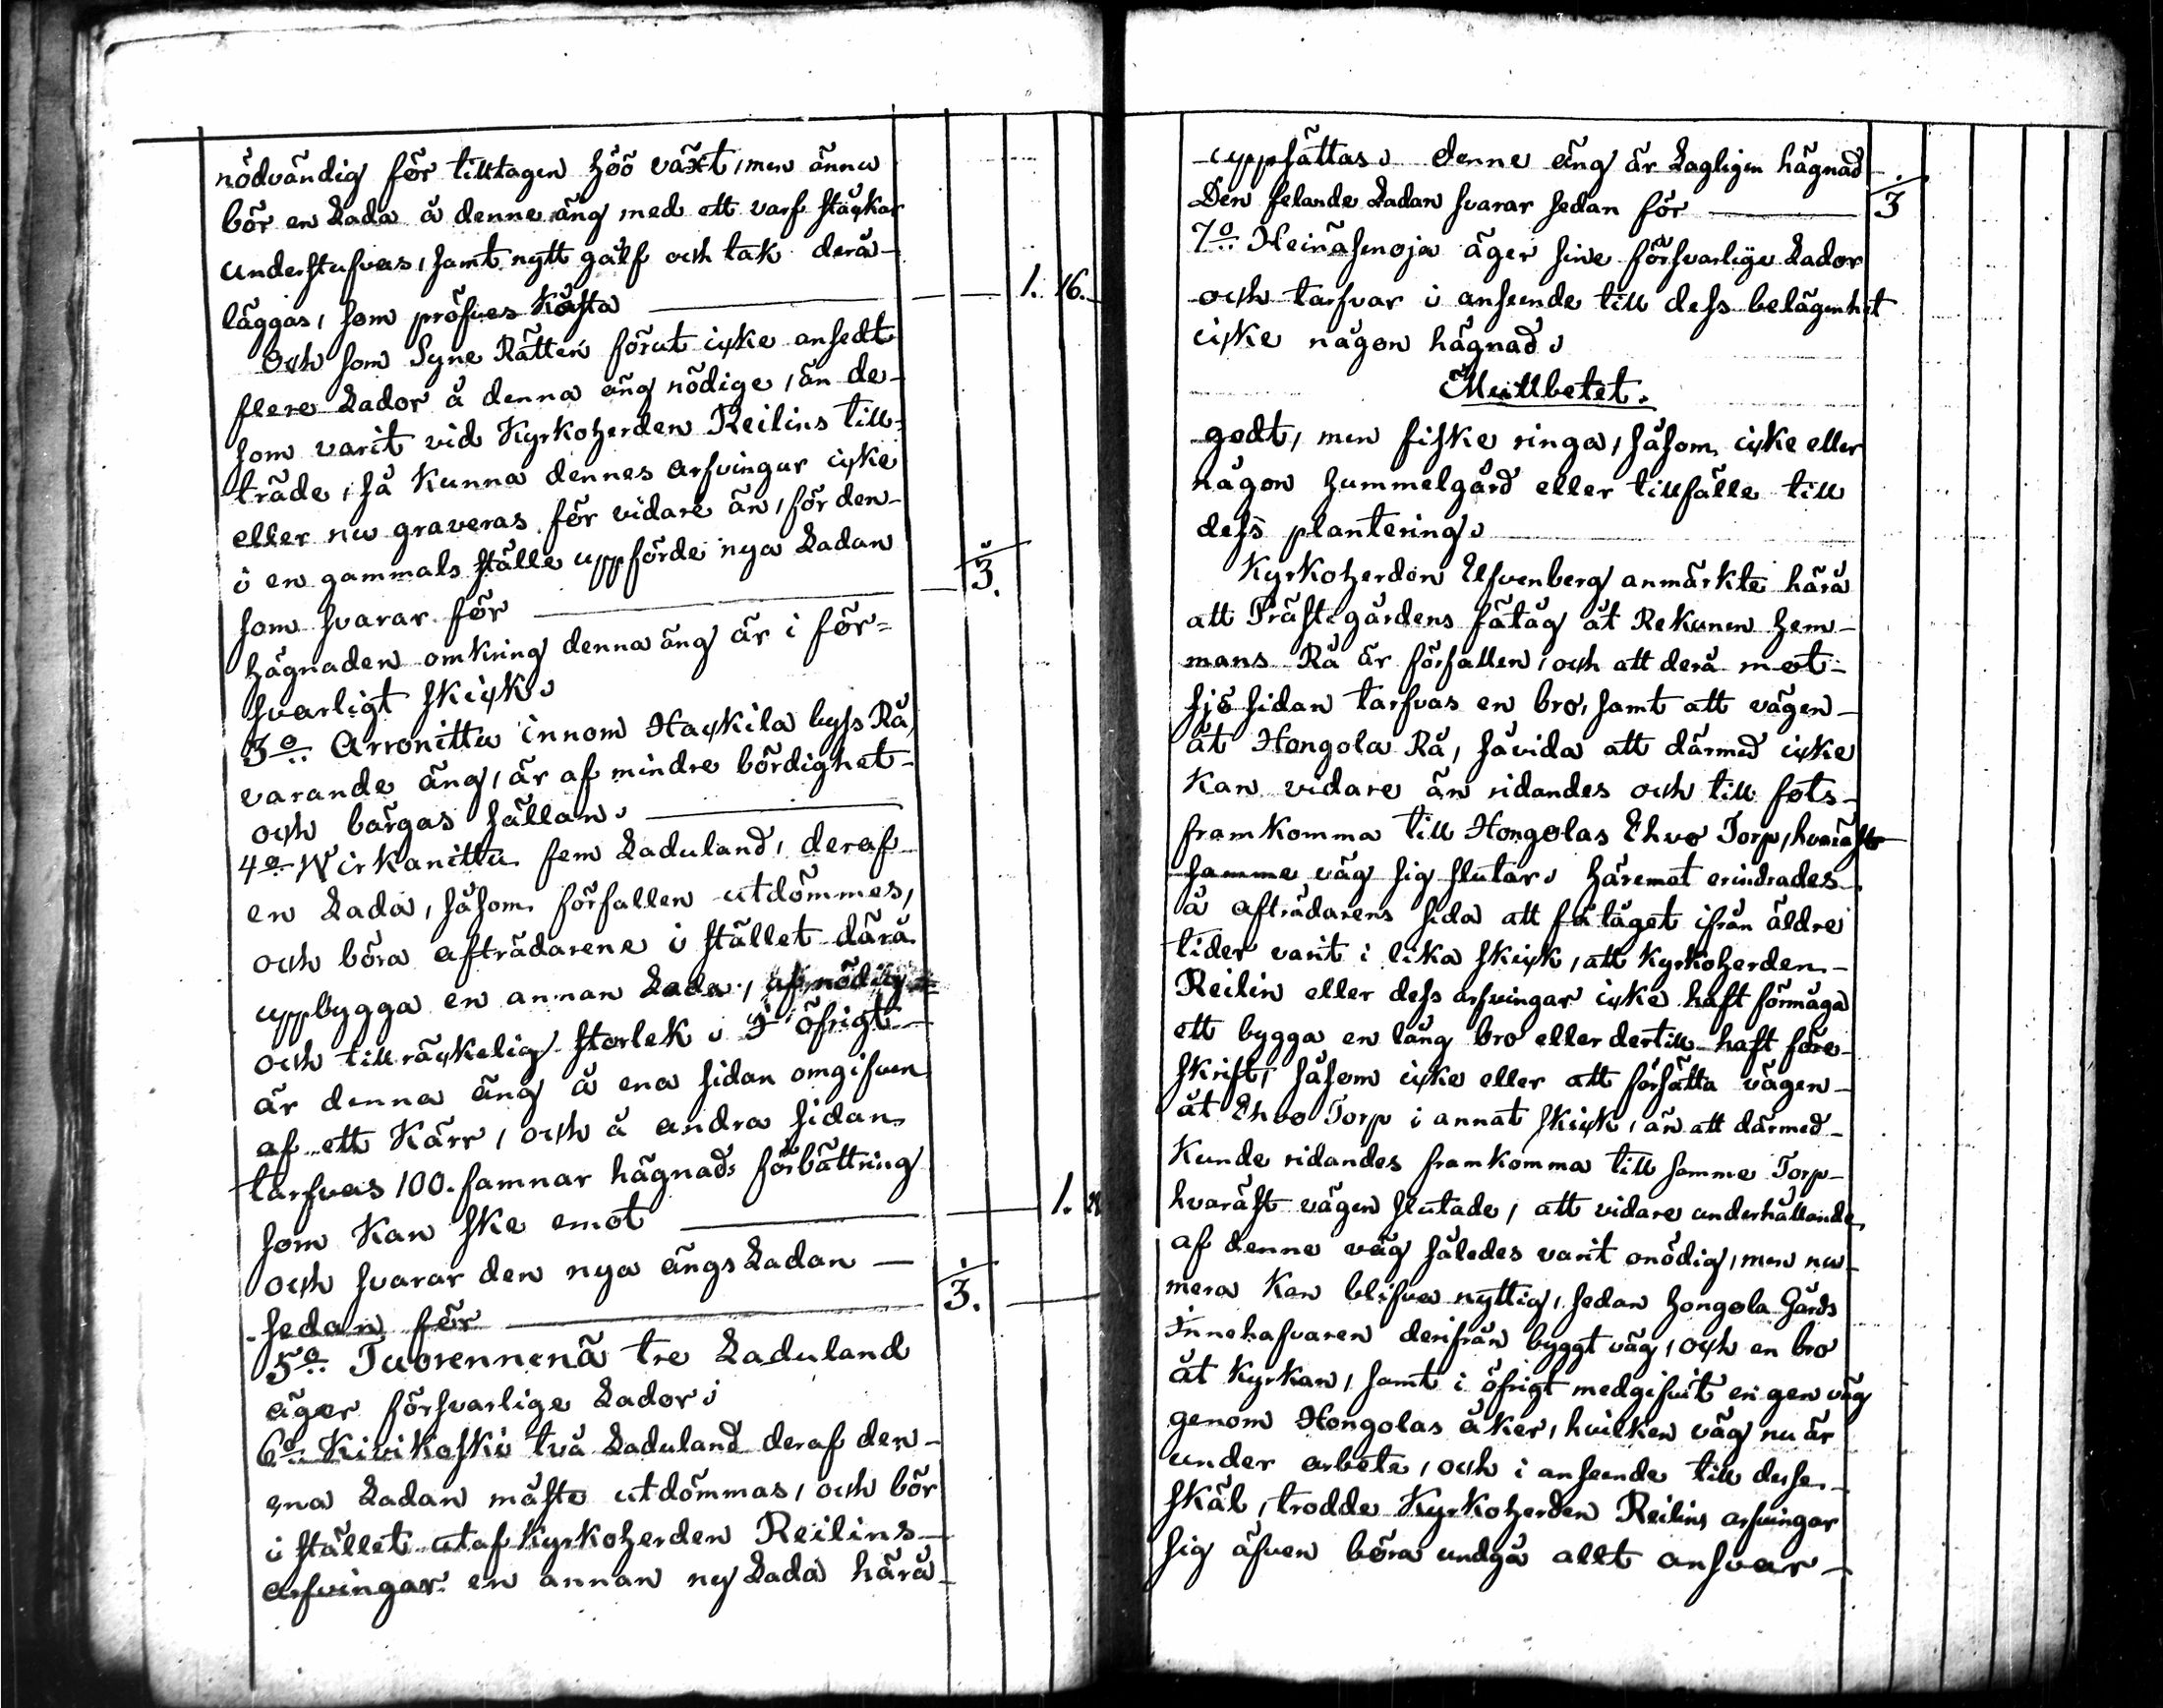 nödvändig för tilltagen höö växt, men ännu
bör en Lada å denne äng med ett varf stäckar
understufvas, samt nytt gålf och tak derå
läggas, som pröfves kåsta — 1. 16.
Och som Syne Rätten förut icke ansedt
flere Lador å denna äng nödige, än de
som varit vid Kyrkoherden Reilins till-
träde, så kunna dennes arfvingar icke
eller nu graveras för vidare än, för den
i en gammals ställe uppförde nya Ladan
som svarar för — 3.
hägnaden omkring denna äng är i för=
svarligt skick.
3o Arronittu innom Hackila byss Rå,
varande äng, är af mindre bördighet
och bärgas sällan.
4o Wirkanittu fem Laduland, deraf
en Lada, såsom förfallen utdömmes,
och böra afträdarene i stället därå
uppbygga en annan Lada, af nödig
och tillräckelig storlek. I öfrigt
är denna äng å ena sidan omgifven
af ett Kärr, och å andra sidan
tarfvas 100. famnar hägnads förbättring
som kan ske emot — 1.
och svarar den nya ängs Ladan —
sedan för — 3.
5o Tuorennenä tre Laduland
äger försvarlige Lador.
6o Kivikoski två Laduland deraf den
ena Ladan måste utdömmas, och bör
i stället utaf Kyrkoherden Reilins
arfvingar en annan ny Lada härå
uppsättas. denne äng är Lagligen hägnad
Den felande Ladan svarar sedan för — 3
7o Heinäsenoja äger sine försvarlige Lador
och tarfvar i anseende till dess belägenhet
icke någon hägnad.
Mullbetet.
godt, men fiske ringa, såsom icke eller
någon hummelgård eller tillfälle till
dess plantering.
Kyrkoherden Elfvenberg anmärkte härå
att Prästegårdens fätåg åt Rekunen hem-
mans Rå är förfallen, och att derå mot
sjö sidan tarfvas en bro, samt att vägen
åt Hongola Rå, såvida att därmed icke
kan vidare än ridandes och till fots
framkomma till Hongolas Ehvo Torp, hvaräst
samme väg sig slutar. häremot erindrades
å afträdarens sida att fätåget ifrån äldre
tider varit i lika skick, att Kyrkoherden
Reilin eller dess arfvingar icke haft förmåga
ett bygga en lång bro eller dertill haft före-
skrift, såsom icke eller att försätta vägen
åt Ehvo Torp i annat skick, än att därmed
kunde ridandes framkomma till samme Torp
hvaräst vägen slutade, att vidare underhållande
af denne väg således varit onödig, men nu
mera kan blifva nyttig, sedan hongola Gårds
Innehafvaren derifrån byggt väg, och en bro
åt kyrkan, samt i öfrigt medgifvit en gen väg
genom Hongolas åker, hvilken väg nu är
under arbete, och i anseende till desse
skäl, trodde Kyrkoherden Reilins arfvingar
sig äfven böra undgå allt ansvar